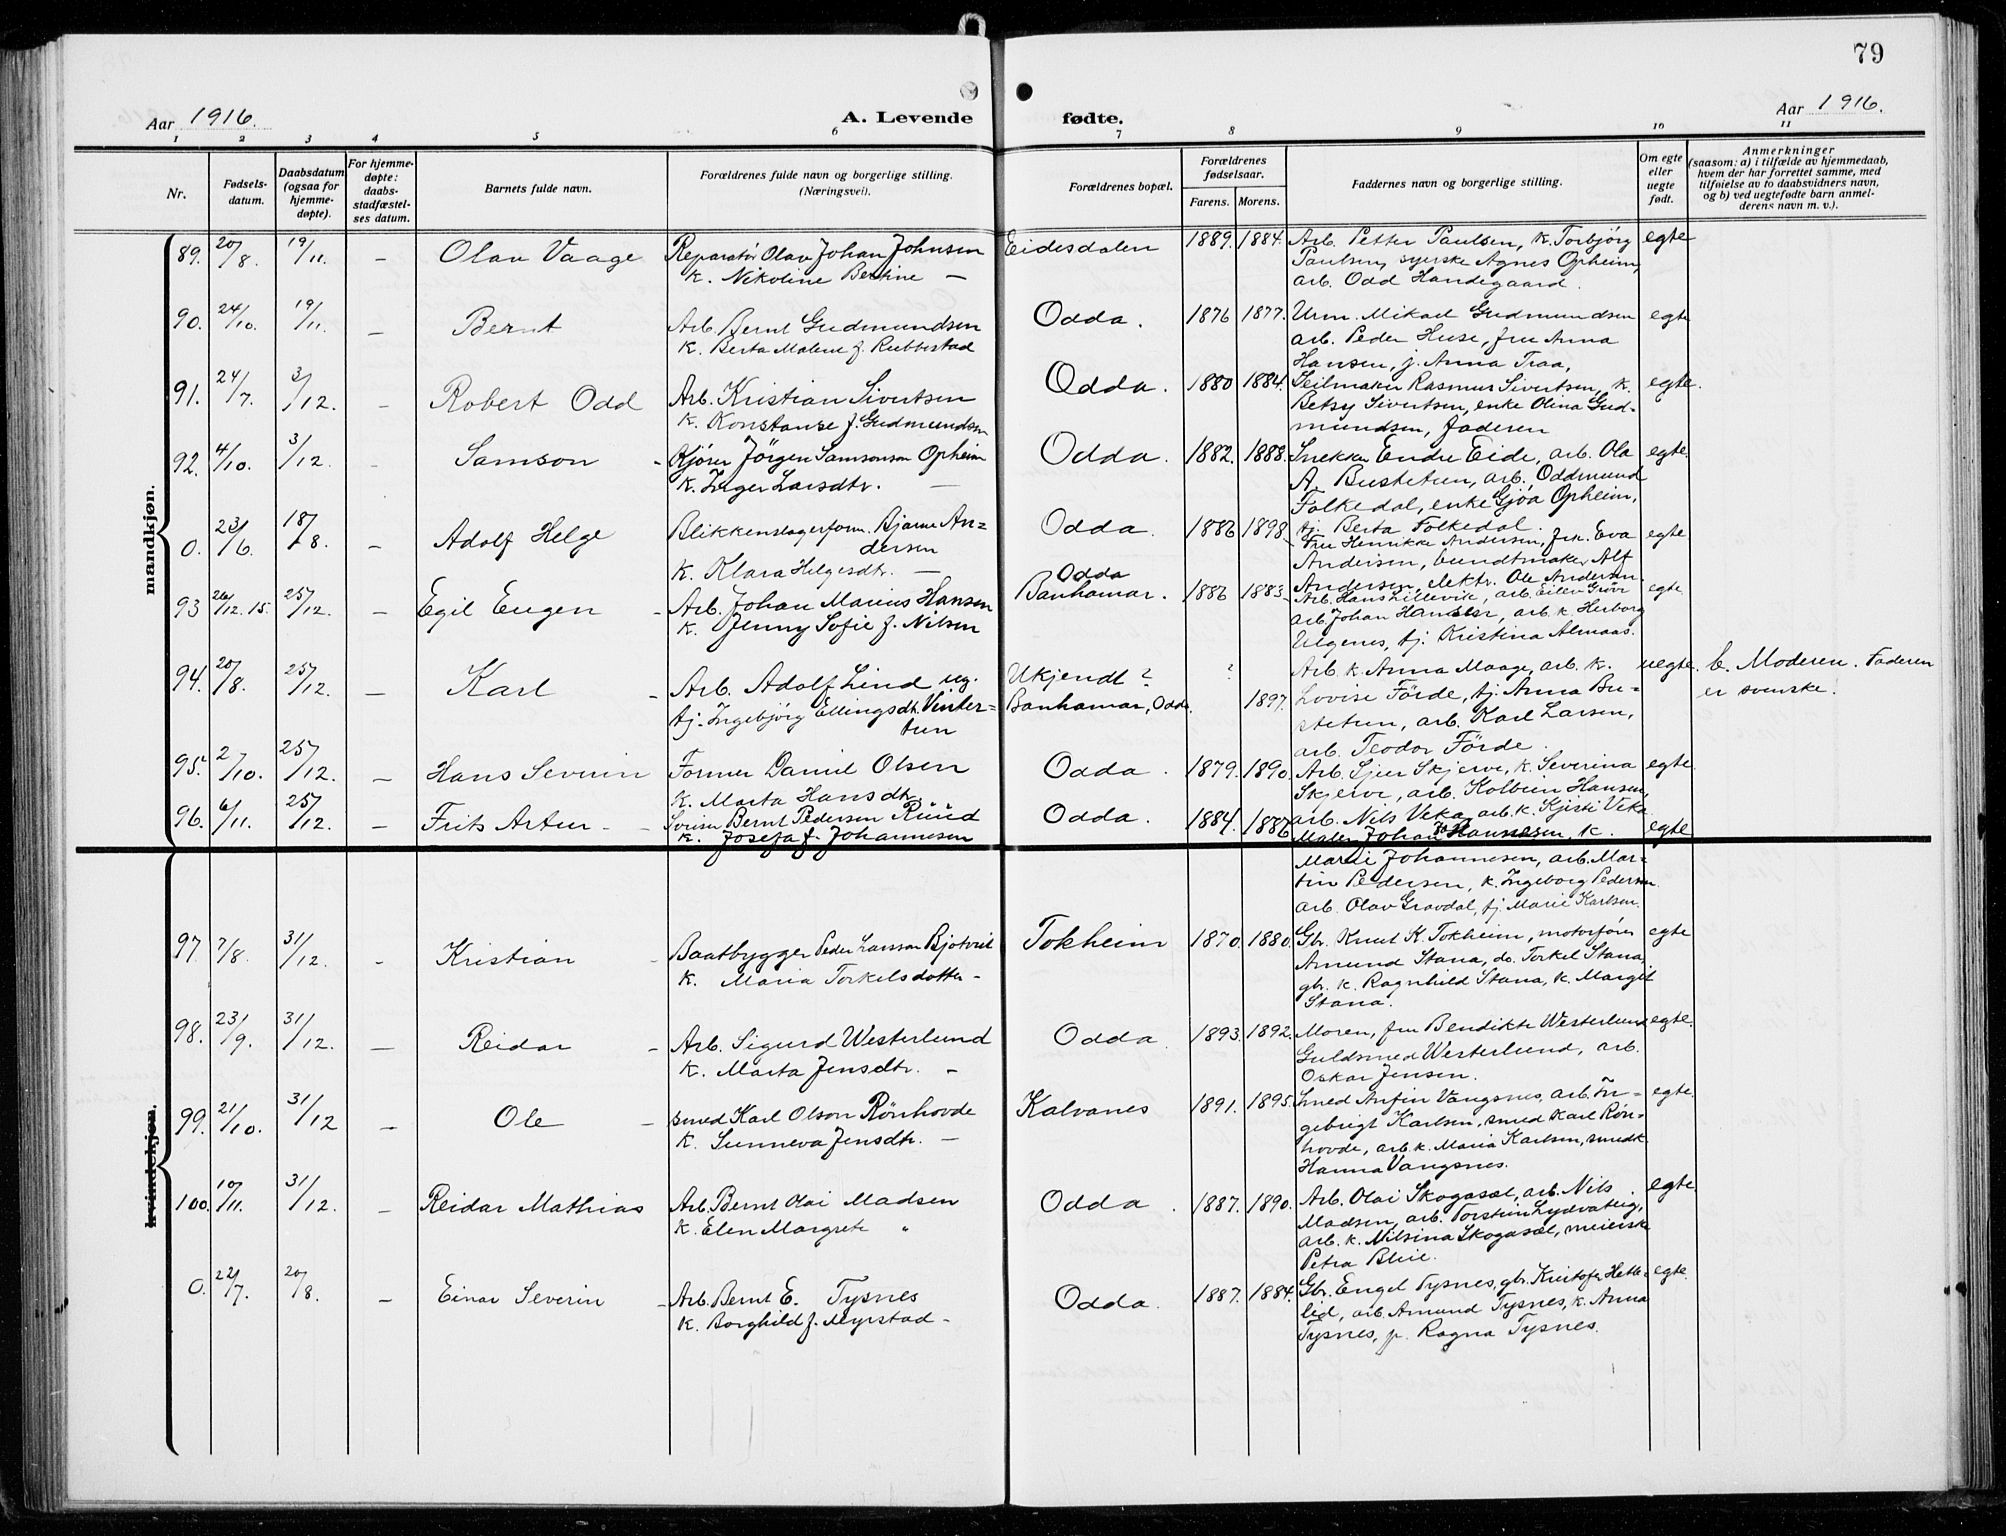 79
Aar 1916.
A. Levende fødte.
Aar 1916.
1 2 3 4 5 6 7 8 9 10 11
Nr.
Fødsels-
datum.
Daabsdatum
(ogsaa for
hjemme-
døpte).
For hjemme-
døpte:
daabs-
stadfæstel-
ses datum.
Barnets fulde navn.
Forældrenes fulde navn og borgerlige stilling.
(Næringsvei).
Forældrenes bopæl.
Forældrenes
fødselsaar.
Farens. Morens.
Faddernes navn og borgerlige stilling.
Om egte
eller
uegte
født.
Anmerkninger
(saasom: a) i tilfælde av hjemmedaab,
hvem der har forrettet samme, med
tilføielse av to daabsvidners navn,
og b) ved uegtefødte barn anmel-
derens navn m. v.).
mandkjøn.
89. 20/8. 19/11. – Olav Vaage Reparatør Olav Johan Johnsen Eidesdalen 1889. 1884. Arb. Petter Paulsen, k. Torbjörg egte
k. Nikoline Bertine – Paulsen, syerske Agnes Opheim,
arb. Odd Handegaard.
90. 24/10. 19/11. – Bernt Arb. Bernt Gudmundsen Odda. 1876 1877. Urm. Mikael Gudmundsen egte
k. Berta Malene f. Rubbestad arb. Peder Huse, fru Anna
Hansen, j. Anna Traa,
91. 24/7. 3/12. – Robert Odd Arb. Kristian Sivertsen Odda. 1880 1884. Seilmaker Rasmus Sivertsen, k. egte.
k. Konstanse f. Gudmundsen Betsy Sivertsen, enke Olina Gud-
mundsen, faderen
92. 4/10. 3/12. – Samson – Kjører Jörgen Samsonsen Opheim Odda. 1882. 1888. Snekker Endre Eide, arb. Ola egte.
k. Inger Larsdtr. – A. Bustetun, arb. Oddmund
Folkedal, enke Gjøa Opheim,
tj. Berta Folkedal.
0. 23/6. 18/8. – Adolf Helge Blikkenslagerform. Bjarne An- Odda. 1886 1898 Fru Henrikke Andersen, frk. Eva egte
dersen Andersen, bundtmaker Alf
k. Klara Helgesdtr. – Andersen, elektr. Ole Andersen.
93 26/12. 15. 25/12. – Egil Eugen – Arb. Johan Marius Hansen Odda Banhamar. 1886 1883. Arb. Hans Lillevik, arb. Eilev Grövr egte.
k. Jenny Sofie f. Nilsen arb. Johan Hansen, arb. k. Herborg
Ulgenes, tj. Kristina Almaas.
94. 20/8. 25/12. – Karl – Arb. Adolf Lind ug. Ukjendt? ? Arb. k. Anna Maage, arb. k. uegte. b. Moderen. Faderen
tj. Ingebjörg Ellingsdtr. Vinter- Banhamar, Odda. 1897. Lovise Förde, tj. Anna Bu- er svenske.
tun stetun, arb. Karl Larsen,
arb. Teodor Förde.
95. 2/10. 25/12. – Hans Severin Former Daniel Olsen Odda. 1879. 1890. Arb. Sjur Skjerve, k. Severina egte.
k. Marta Hansdtr. Skjerve, arb. Kolbein Hansen,
arb. Nils Veka, arb. k. Kjisti Veka
96. 6/11. 25/12. – Frits Artur – Bernt Pedersen Ruud Odda. 1884. 1886 Maler Johan Johannesen, k. egte
k. Josefa f. Johannesen
Marie Johannesen, arb. Mar-
tin Pedersen, k. Ingeborg Pedersen.
arb. Olav Gravdal, tj. Marie Karlsen.
kvindekjøn.
97. 7/8. 31/12. – Kristian – Baatbygger Peder Larsson Bjotveit Tokheim 1870. 1880. Gbr. Knut K. Tokheim, motorfører egte
k. Maria Torkelsdotter – Amund Stana, do. Torkel Stana,
gbr. k. Ragnhild Stana, k. Margit
Stana.
98. 23/9. 31/12. – Reidar – Arb. Sigurd Westerlund Odda. 1893. 1892. Moren, fru Bendikte Westerlund egte.
k. Marta Jensdtr. – Guldsmed Westerlund, arb.
Oskar Jensen.
99. 21/10. 31/12 – Ole – Smed Karl Olson Rönhovde Kalvanes 1891. 1895. Smed Anfin Vangsnes, arb. In- egte.
k. Sunneva Jensdtr. – gebrigt Karlsen, smed Karl Rön-
hovde, arb. k. Maria Karlsen, smedk.
Hanna Vangsnes.
100. 10/11. 31/12. – Reidar Mathias Arb. Bernt Olai Madsen Odda. 1887. 1890. Arb. Olai Skogasæl, arb. Nils egte.
k. Elen Margrete „ Madsen, arb. Torstein Lydvateig,
arb. k. Nilsina Skogasæl, meierske
Petra Blie.
0. 22/7. 20/8. – Einar Severin – Arb. Bernt E. Tysnes Odda. 1887. 1884. Gbr. Engel Tysnes, gbr. Kristofer Hette- egte.
k. Borghild f. Myrstad – lid, arb. Amund Tysnes, k. Anna
Tysnes, p. Ragna Tysnes.